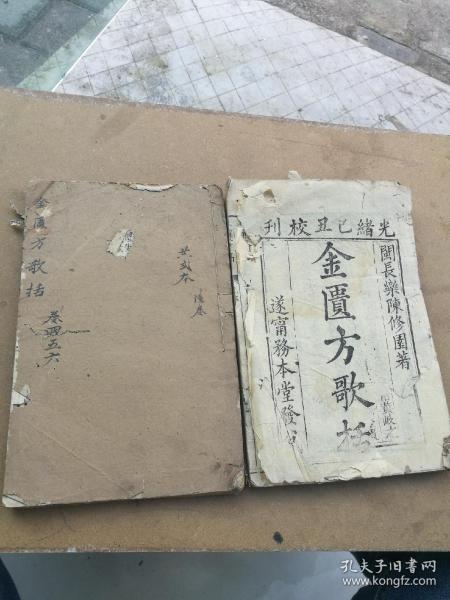 金匱方歌括
卷四五六
共弍本
光緒己丑校刊
閩長樂陳修園著
金匱方歌括
遂甯務本堂發
孔夫子旧书网
www.kongfz.com